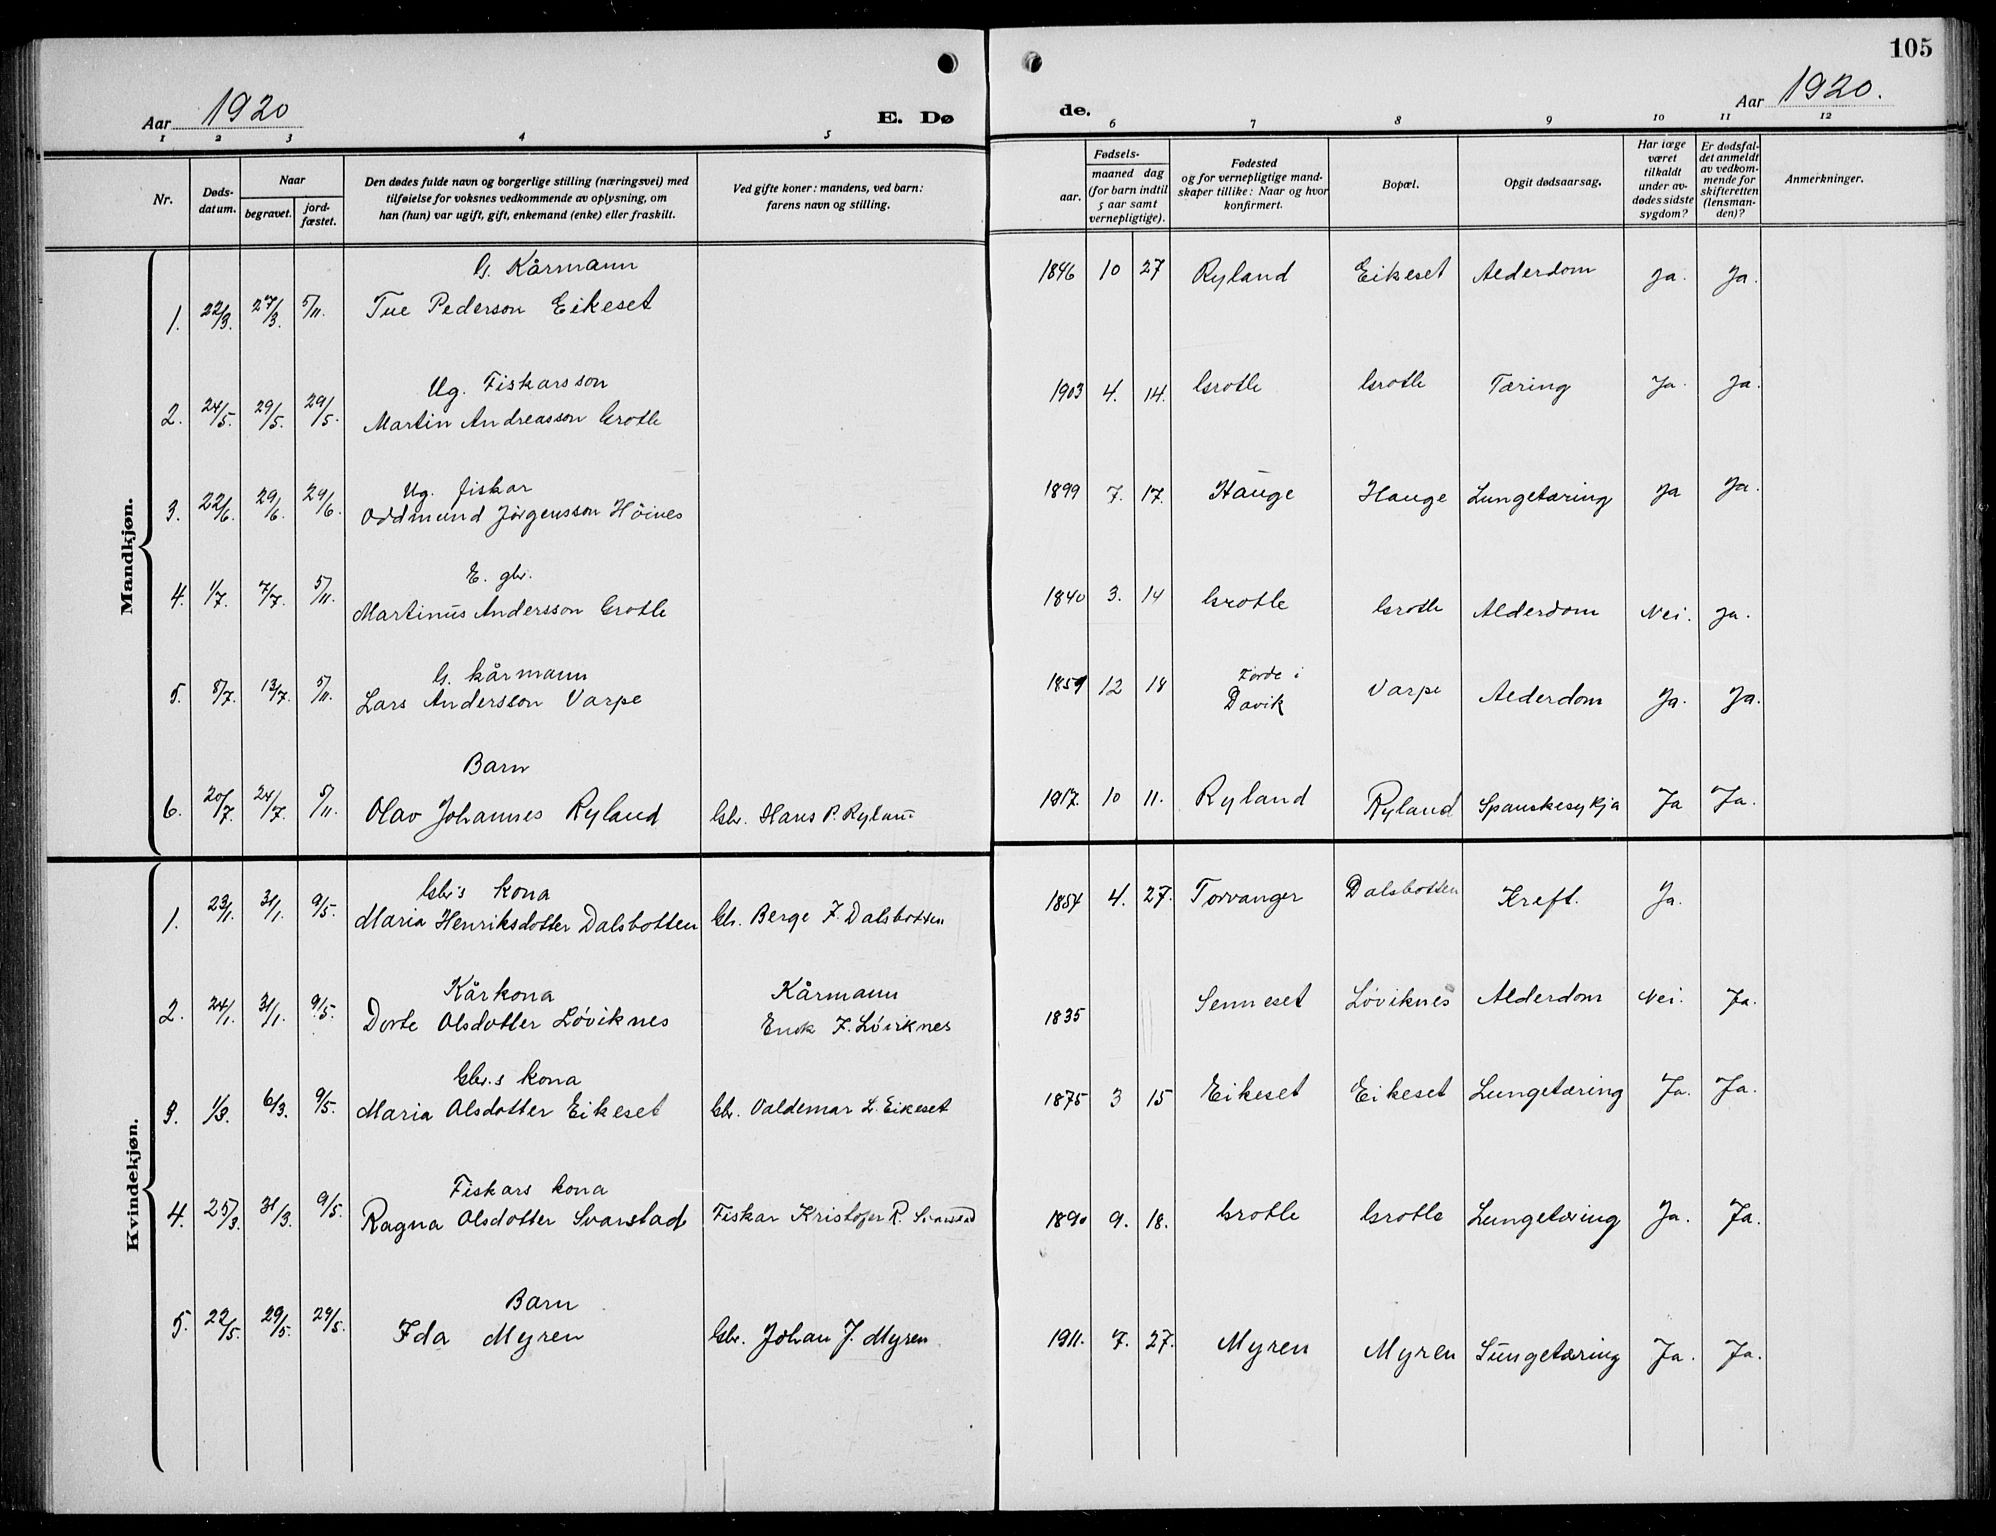 105
Aar 1920
E. Dø
de.
Aar 1920.
1 2 3 4 5 6 7 8 9 10 11 12
Nr.
Døds-
datum.
Naar
begravet.
jord-
fæstet.
Den dødes fulde navn og borgerlige stilling (næringsvei) med
tilføielse for voksnes vedkommende av oplysning, om
han (hun) var ugift, gift, enkemand (enke) eller fraskilt.
Ved gifte koner: mandens, ved barn:
farens navn og stilling.
Fødsels-
aar. maaned dag
(for barn indtil
5 aar samt
vernepligtige).
Fødested
og for vernepligtige mand-
skaper tillike: Naar og hvor
konfirmert.
Bopæl.
Opgit dødsaarsag.
Har læge
været
tilkaldt
under av-
dødes sidste
sygdom?
Er dødsfal-
det anmeldt
av vedkom-
mende for
skifteretten
(lensman-
den)?
Anmerkninger.
Mandkjøn.
G. Kårmann
1. 22/3. 27/3. 5/11. Tue Pederson Eikeset 1846 10 27 Ryland Eikeset Alderdom Ja. Ja.
Ug. Fiskarsson
2. 24/5. 29/5. 29/5. Martin Andreasson Grotle 1903 4. 14. Grotle Grotle Tæring Ja. Ja.
Ug. fiskar
3. 22/6. 29/6. 29/6. Oddmund Jørgensson Höines 1899 7. 17. Hauge Hauge Lungetæring Ja Ja.
E. gbr.
4. 1/7. 7/7. 5/11. Martinus Andersson Grotle 1840 3. 14 Grotle Grotle Alderdom Nei. Ja.
G. kårmann
5. 8/7. 13/7. 5/11. Lars Andersson Varpe 1859 12 18 Førde i
Davik Varpe Alderdom Ja. Ja.
Barn
6. 20/7. 24/7. 5/11. Olav Johannes Ryland Gbr. Hans P. Ryland 1917. 10 11. Ryland Ryland Spanskesykja Ja Ja.
Kvindekjøn.
Gbr's kona
1. 23/1. 31/1. 9/5. Maria Henriksdotter Dalsbotten Gbr. Berge J. Dalsbotten 1854 4. 27. Torvanger Dalsbotten Kreft. Ja.
Kårkona Kårmann
2. 24/1. 31/1. 9/5. Dorte Olsdotter Løviknes J. Løviknes 1835 Senneset Løviknes Alderdom Nei. Ja.
Gbr.s kona
3. 1/3. 6/3. 9/5. Maria Olsdotter Eikeset Gbr. Valdemar L. Eikeset 1875 3 15 Eikeset Eikeset Lungetæring Ja. Ja.
Fiskars kona
4. 25/3. 31/3. 9/5. Ragna Olsdotter Svarstad Fiskar Kristofer R. Svarstad 1890 9. 18. Grotle Grotle Lungetæring Ja. Ja.
Barn
5. 22/5. 29/5. 29/5. Ida Myren Gbr. Johan J. Myren 1911. 7. 27. Myren Myren Lungetæring Ja. Ja.